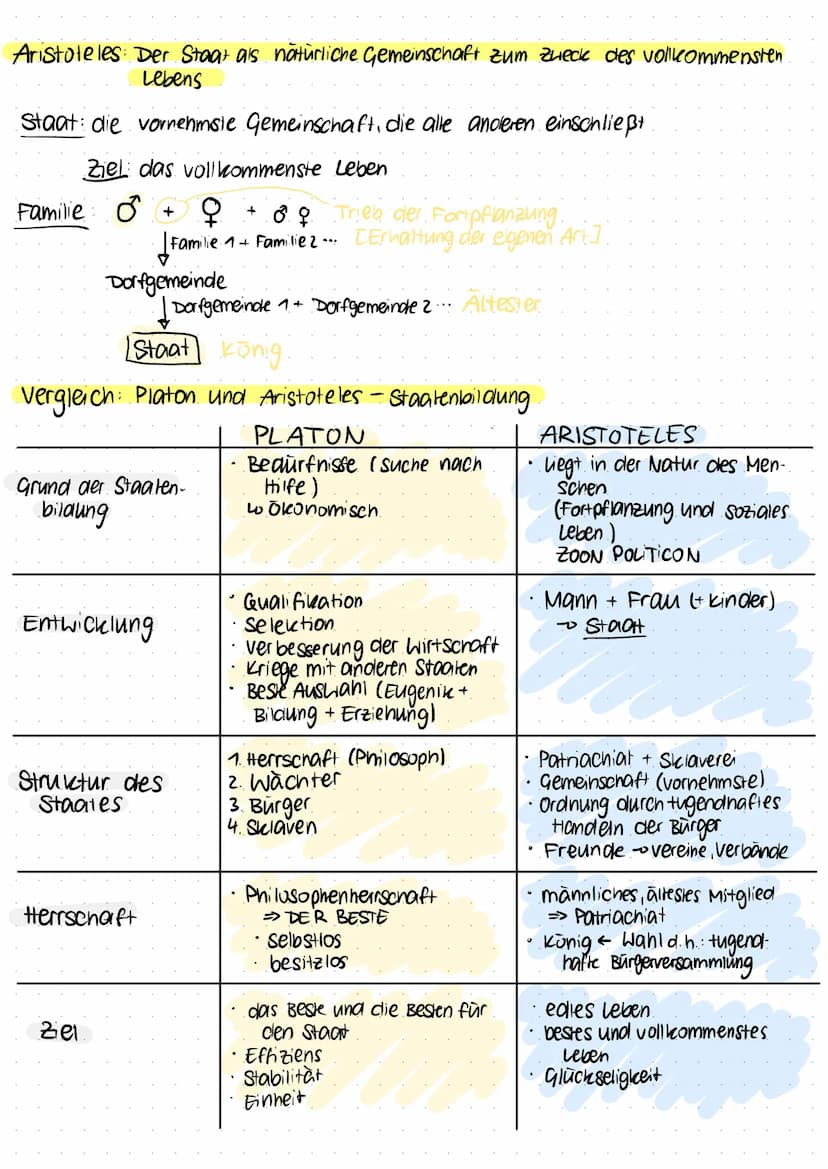 Aristoteles: Der Staat als natürliche Gemeinschaft zum Zweck des vollkommensten
Lebens
Staat: die vornehmste Gemeinschaft, die alle anderen einschließt
Ziel: das vollkommenste Leben
Familie: ♂ + ♀ + ♂ ♀ Trieb der Fortpflanzung
Familie 1 + Familie 2 ... [Erhaltung der eigenen Art]
Dorfgemeinde
Dorfgemeinde 1 + Dorfgemeinde 2 ... Ältester
Staat König
Vergleich: Platon und Aristoteles – Staatenbildung
PLATON
ARISTOTELES
Grund der Staaten-
bildung
· Bedürfnisse (Suche nach
Hilfe)
↳ Ökonomisch
· liegt in der Natur des Men-
schen
(Fortpflanzung und soziales
Leben)
ZOON POLITICON
Entwicklung
· Qualifikation
· Selektion
· Verbesserung der Wirtschaft
· Kriege mit anderen Staaten
· Beste Auswahl (Eugenik +
Bildung + Erziehung)
· Mann + Frau (+ Kinder)
→ Staat
Struktur des
Staates
1. Herrschaft (Philosoph)
2. Wächter
3. Bürger
4. Sklaven
· Patriachiat + Sklaverei
· Gemeinschaft (vornehmste)
· Ordnung durch tugendhaftes
Handeln der Bürger
· Freunde → Vereine, Verbände
Herrschaft
· Philosophenherrschaft
⇒ DER BESTE
· selbstlos
· besitzlos
· männliches, ältestes Mitglied
⇒ Patriachiat
· König ← Wahl d.h.: tugend-
hafte Bürgerversammlung
Ziel
· das Beste und die Besten für
den Staat
· Effiziens
· Stabilität
· Einheit
· edles Leben
· bestes und vollkommenstes
Leben
· Glückseligkeit